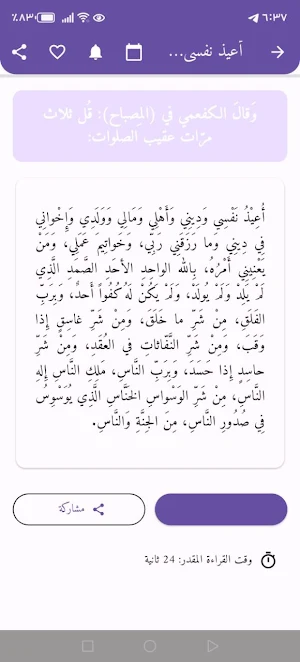 ٪٨٣ ٦:٣٧
أعيذ نفسي...
وَقالَ الكفعمي في (المِصباح): قُل ثَلاث
مرّات عقيب الصلوات:
أُعِيْذُ نَفْسِي وَدِيْنِي وَأَهْلِي وَمَالِي وَوَلَدِي وَإِخْوانِي
فِي دِيْنِي وَما رَزَقَنِي رَبِّي، وَخَواتِيمَ عَمَلِي، وَمَنْ
يَعْنِيْنِي أَمْرُهُ، بِاللهِ الواحِدِ الأَحَدِ الصَّمَدِ الَّذِي
لَمْ يَلِدْ وَلَمْ يُولَدْ، وَلَمْ يَكُنْ لَهُ كُفُواً أَحَدٌ، وَبِرَبِّ
الفَلَقِ، مِنْ شَرِّ ما خَلَقَ، وَمِنْ شَرِّ غاسِقٍ إِذا
وَقَبَ، وَمِنْ شَرِّ النَّفّاثاتِ فِي العُقَدِ، وَمِنْ شَرِّ
حاسِدٍ إِذا حَسَدَ، وَبِرَبِّ النَّاسِ، مَلِكِ النَّاسِ إِلهِ
النَّاسِ، مِنْ شَرِّ الوَسْواسِ الخَنَّاسِ الَّذِي يُوَسْوِسُ
فِي صُدُورِ النَّاسِ، مِنَ الجِنَّةِ وَالنَّاسِ.
مشاركة
وقت القراءة المقدر: 24 ثانية